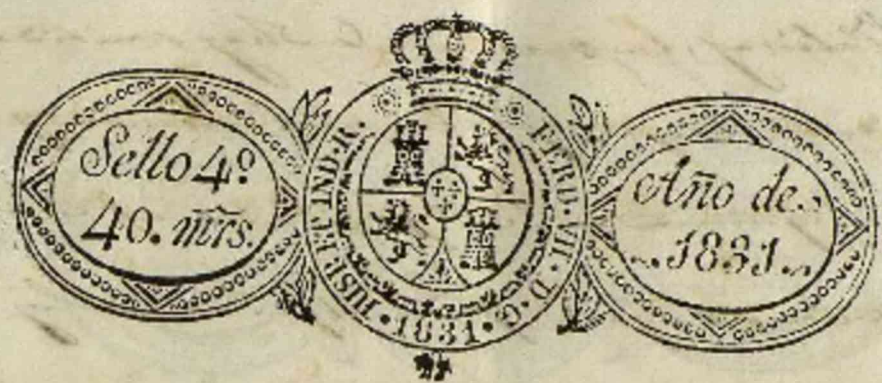 Sello 4º
40. mrs.
FERD·VII·D·G·
·1831·
HISP·ET IND·R·
Año de
1831.